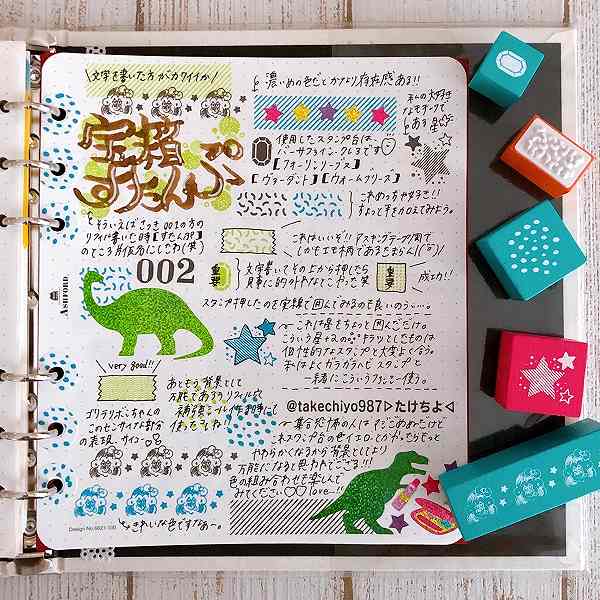 文字を書いた方がカワイイか
宝箱
すたんぷ
濃いめの色だとかなり存在感ある!!
私の大好き
なモチーフで
ある星
使用したスタンプ台は
バーサファインクレアです
【フォーリンリーブス】
【ヴァーダント】【ウォームブリーズ】
これめっちゃ好き!!
ちょっと手をかえてみよう。
そういえばさっき001の方の
リフィル書いた時【すたんぷ】
のところ片仮名にしてた(笑)
これはいいぞ!!マスキングテープ風で
しかもエモ柄であるたまらん!
002
重要
文字書いてその上から押したら
見事に的外れなとこやった笑
重要
成功!!
ASHFORD.
スタンプ押したのを実線で囲んでみるのも良いのうぃ…。
これは星をちょっと囲んだだけ。
こういう星+2の キラッとしたものは
個性的なスタンプと大変よく合う。
私はよくカラカラヘビスタンプと
一緒にこういうブラシを使う。
very good!!
あともう背景として
万能であるのでリフィル穴
補強シール作る時にも
使ったらいいね!!
ゴリラリボンちゃんの
このセンサイな部分
の表現、サイコー
@takechiyo987▷たけちよ◁
集合恐怖の人はすごごめぬだけど
スタンプ台の色イエローとかだったらきっと
やわらかくなるから背景としてより
万能になると思われてござる!!!
色の組み合わせを楽しんで
みてください♡♡love…!!
きれいな色ですなあ〜。
Design No.6821-100